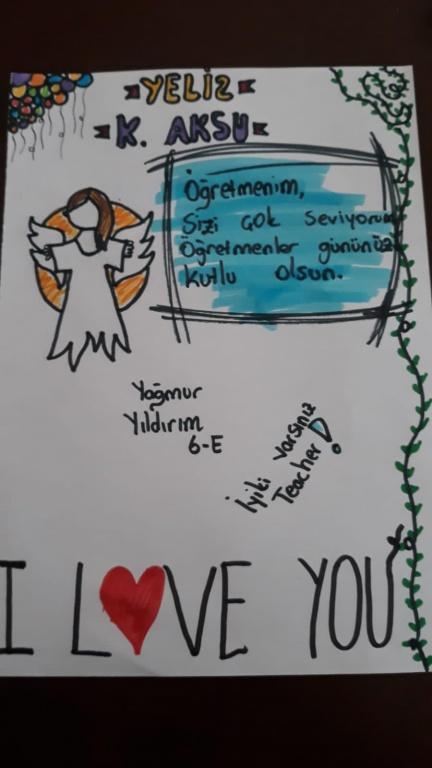 YELİZ
K. AKSU
Öğretmenim,
Sizi çok seviyorum
Öğretmenler gününüz
kutlu olsun.
Yağmur
Yıldırım
6-E
İyiki varsınız
Teacher!
I LOVE YOU